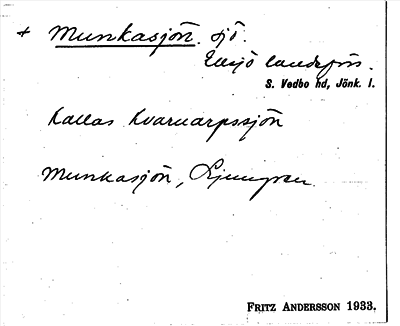 + Munkasjön. sjö.
Eksjö landsförs.
S. Vedbo hd, Jönk. l.
kallas kvarnarpssjön
Munkasjön, Ljunggren.
FRITZ ANDERSSON 1933.